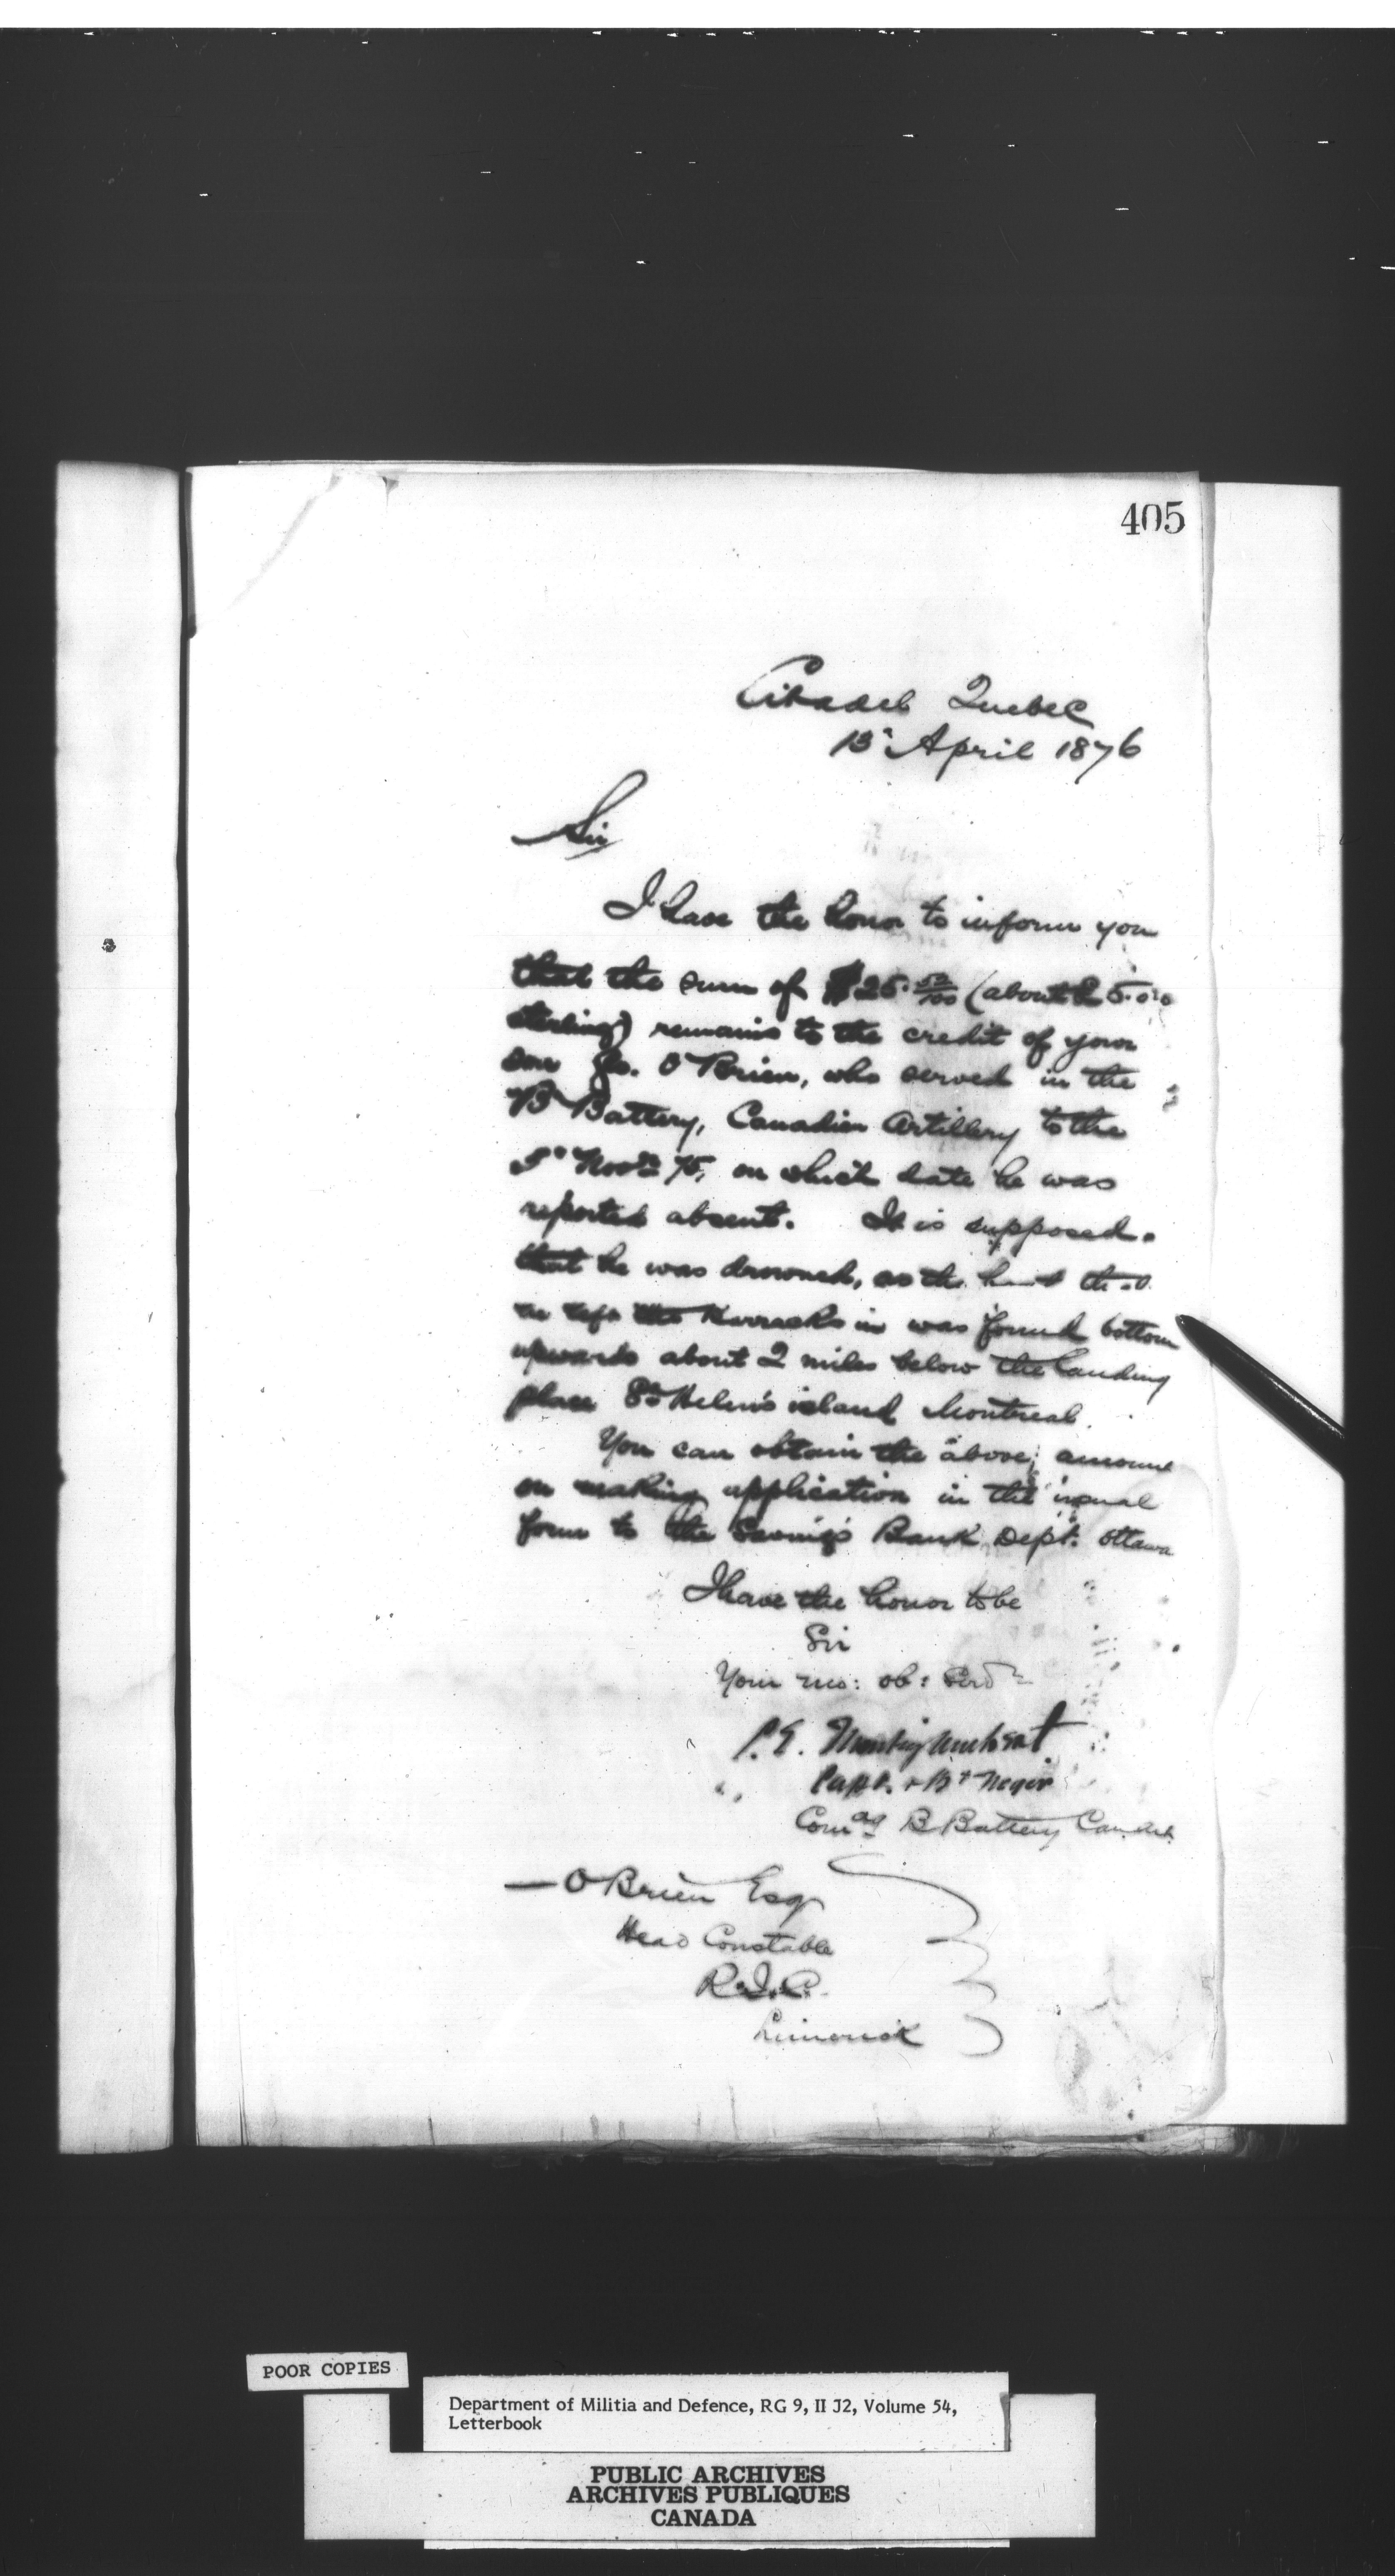 405
Citadel Quebec
13 April 1876
Sir
I have the honor to inform you
that the sum of $25. 52/100 (about £5.0.0
sterling) remains to the credit of your
son O'Brien, who served in the
"B" Battery, Canadian Artillery to the
Novr 75, on which date he was
reported absent. It is supposed
that he was drowned, as the
he left the Barracks in was found bottom
upwards about 2 miles below the landing
place St Helen's island Montreal.
You can obtain the above amount
on making application in the usual
form to the Savings Bank Dept. Ottawa
I have the honor to be
Sir
Your mo: ob: Servt
Capt. & Bt Major
Comdg B Battery
— O'Brien Esq
Head Constable
R.I.C.
Limerick
POOR COPIES
Department of Militia and Defence, RG 9, II J2, Volume 54,
Letterbook
PUBLIC ARCHIVES
ARCHIVES PUBLIQUES
CANADA